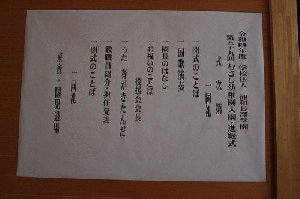 令和四年度 学校法人 浦和長澤学園
第六十九回 むさし幼稚園入園・進級式
式次第
一同礼
一 開式のことば
一 国歌演奏
一 園長のはなし
一 お祝いのことば
後援会会長
一 うた 春がきたんだ
一 教職員紹介・担任発表
一 閉式のことば
一同礼
来賓・園児退場